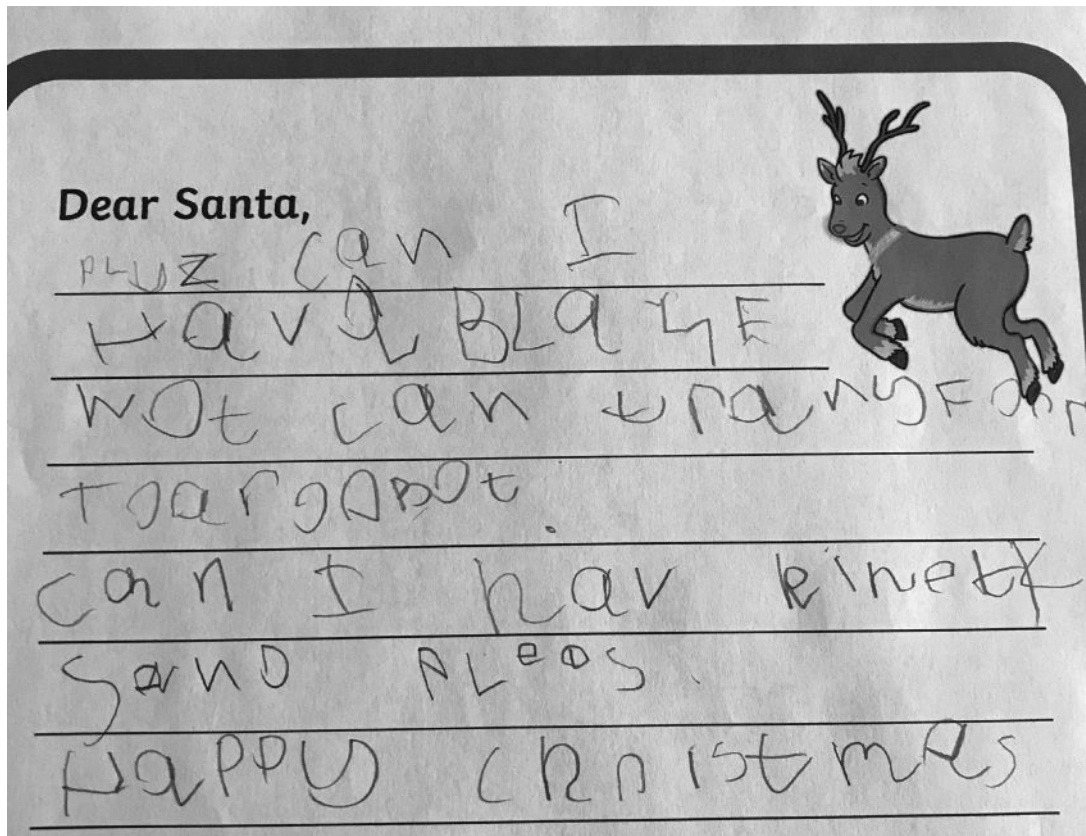 Dear Santa,
PLUZ can I
Hava BLaYE
wot can transForm
toaroABot.
can I hav kinetK
SanD PLeas.
Happy christmas